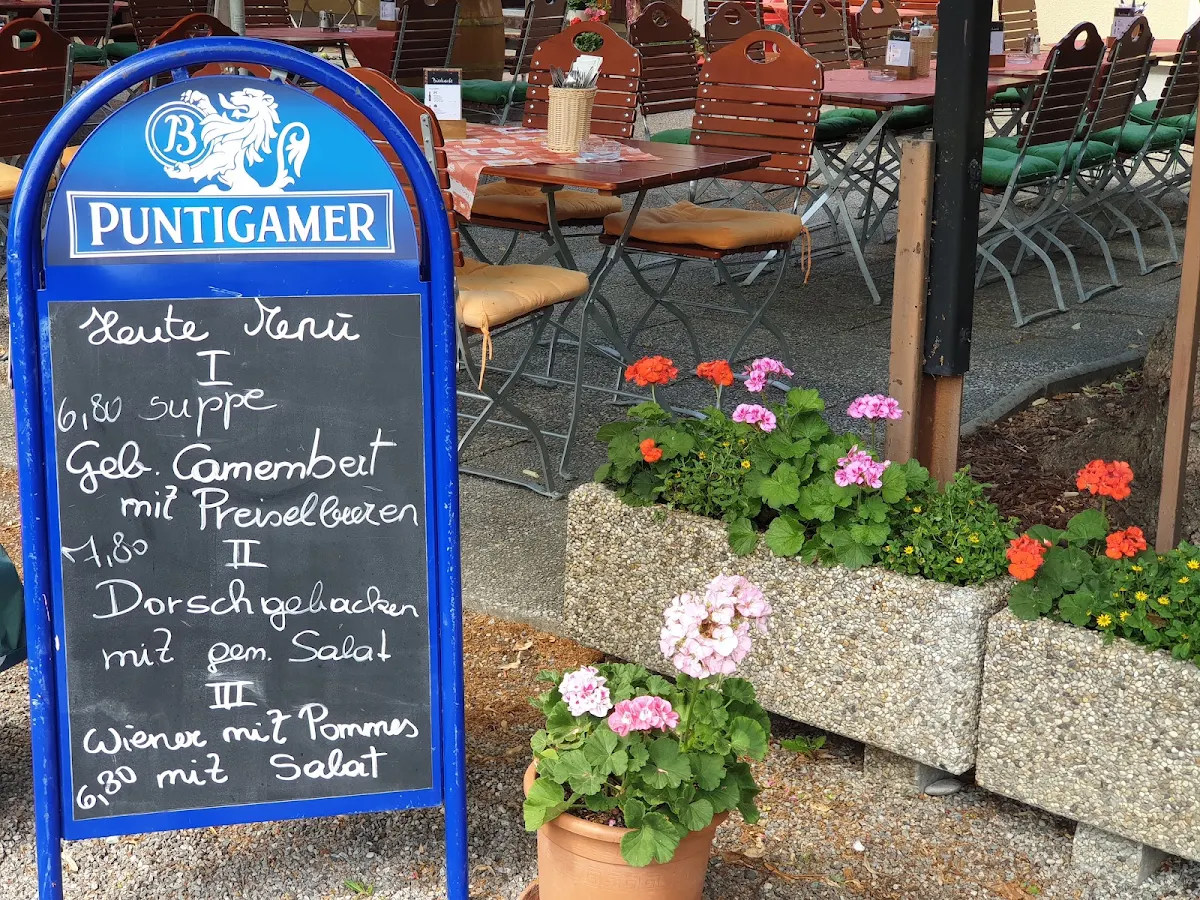 B
PUNTIGAMER
Heute Menü
I
6,80 suppe
Geb. Camembert
mit Preiselbeeren
7,80
II
Dorschgebacken
mit gem. Salat
III
Wiener mit Pommes
6,80 mit Salat